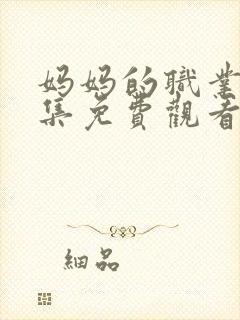 妈妈的職業
集免費觀看
細品